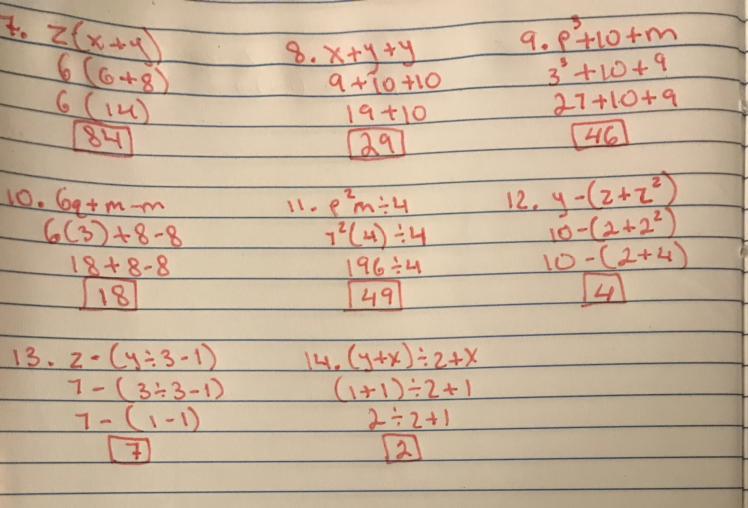 7. z(x+y)
6(6+8)
6(14)
84
8. x+y+y
9+10+10
19+10
29
9. p³+10+m
3³+10+9
27+10+9
46
10. 6q+m-m
6(3)+8-8
18+8-8
18
11. p²m÷4
7²(4)÷4
196÷4
49
12. y-(z+z²)
10-(2+2²)
10-(2+4)
4
13. z-(y÷3-1)
7-(3÷3-1)
7-(1-1)
7
14. (y+x)÷2+x
(1+1)÷2+1
2÷2+1
2